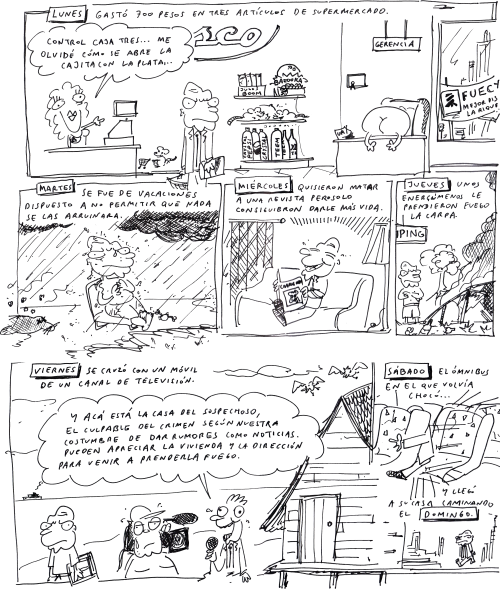 LUNES GASTÓ 700 PESOS EN TRES ARTÍCULOS DE SUPERMERCADO.
CONTROL CAJA TRES... ME
OLVIDÉ CÓMO SE ABRE LA
CAJITA CON LA PLATA...
SCO
GERENCIA
BAZOOKA
JUGOS
BOOM
TEEM
FUECY
MEJOR DIS
LA RIQUE
MARTES SE FUE DE VACACIONES
DISPUESTO A NO PERMITIR QUE NADA
SE LAS ARRUINARA.
MIÉRCOLES QUISIERON MATAR
A UNA REVISTA PERO SOLO
CONSIGUIERON DARLE MÁS VIDA.
JUEVES UNOS
ENERGÚMENOS LE
PRENDIERON FUEGO
LA CARPA.
PING
VIERNES SE CRUZÓ CON UN MÓVIL
DE UN CANAL DE TELEVISIÓN.
Y ACÁ ESTÁ LA CASA DEL SOSPECHOSO,
EL CULPABLE DEL CRIMEN SEGÚN NUESTRA
COSTUMBRE DE DAR RUMORES COMO NOTICIAS.
PUEDEN APRECIAR LA VIVIENDA Y LA DIRECCIÓN
PARA VENIR A PRENDERLA FUEGO.
SÁBADO EL ÓMNIBUS
EN EL QUE VOLVÍA
CHOCÓ...
Y LLEGÓ
A SU CASA CAMINANDO
EL DOMINGO.